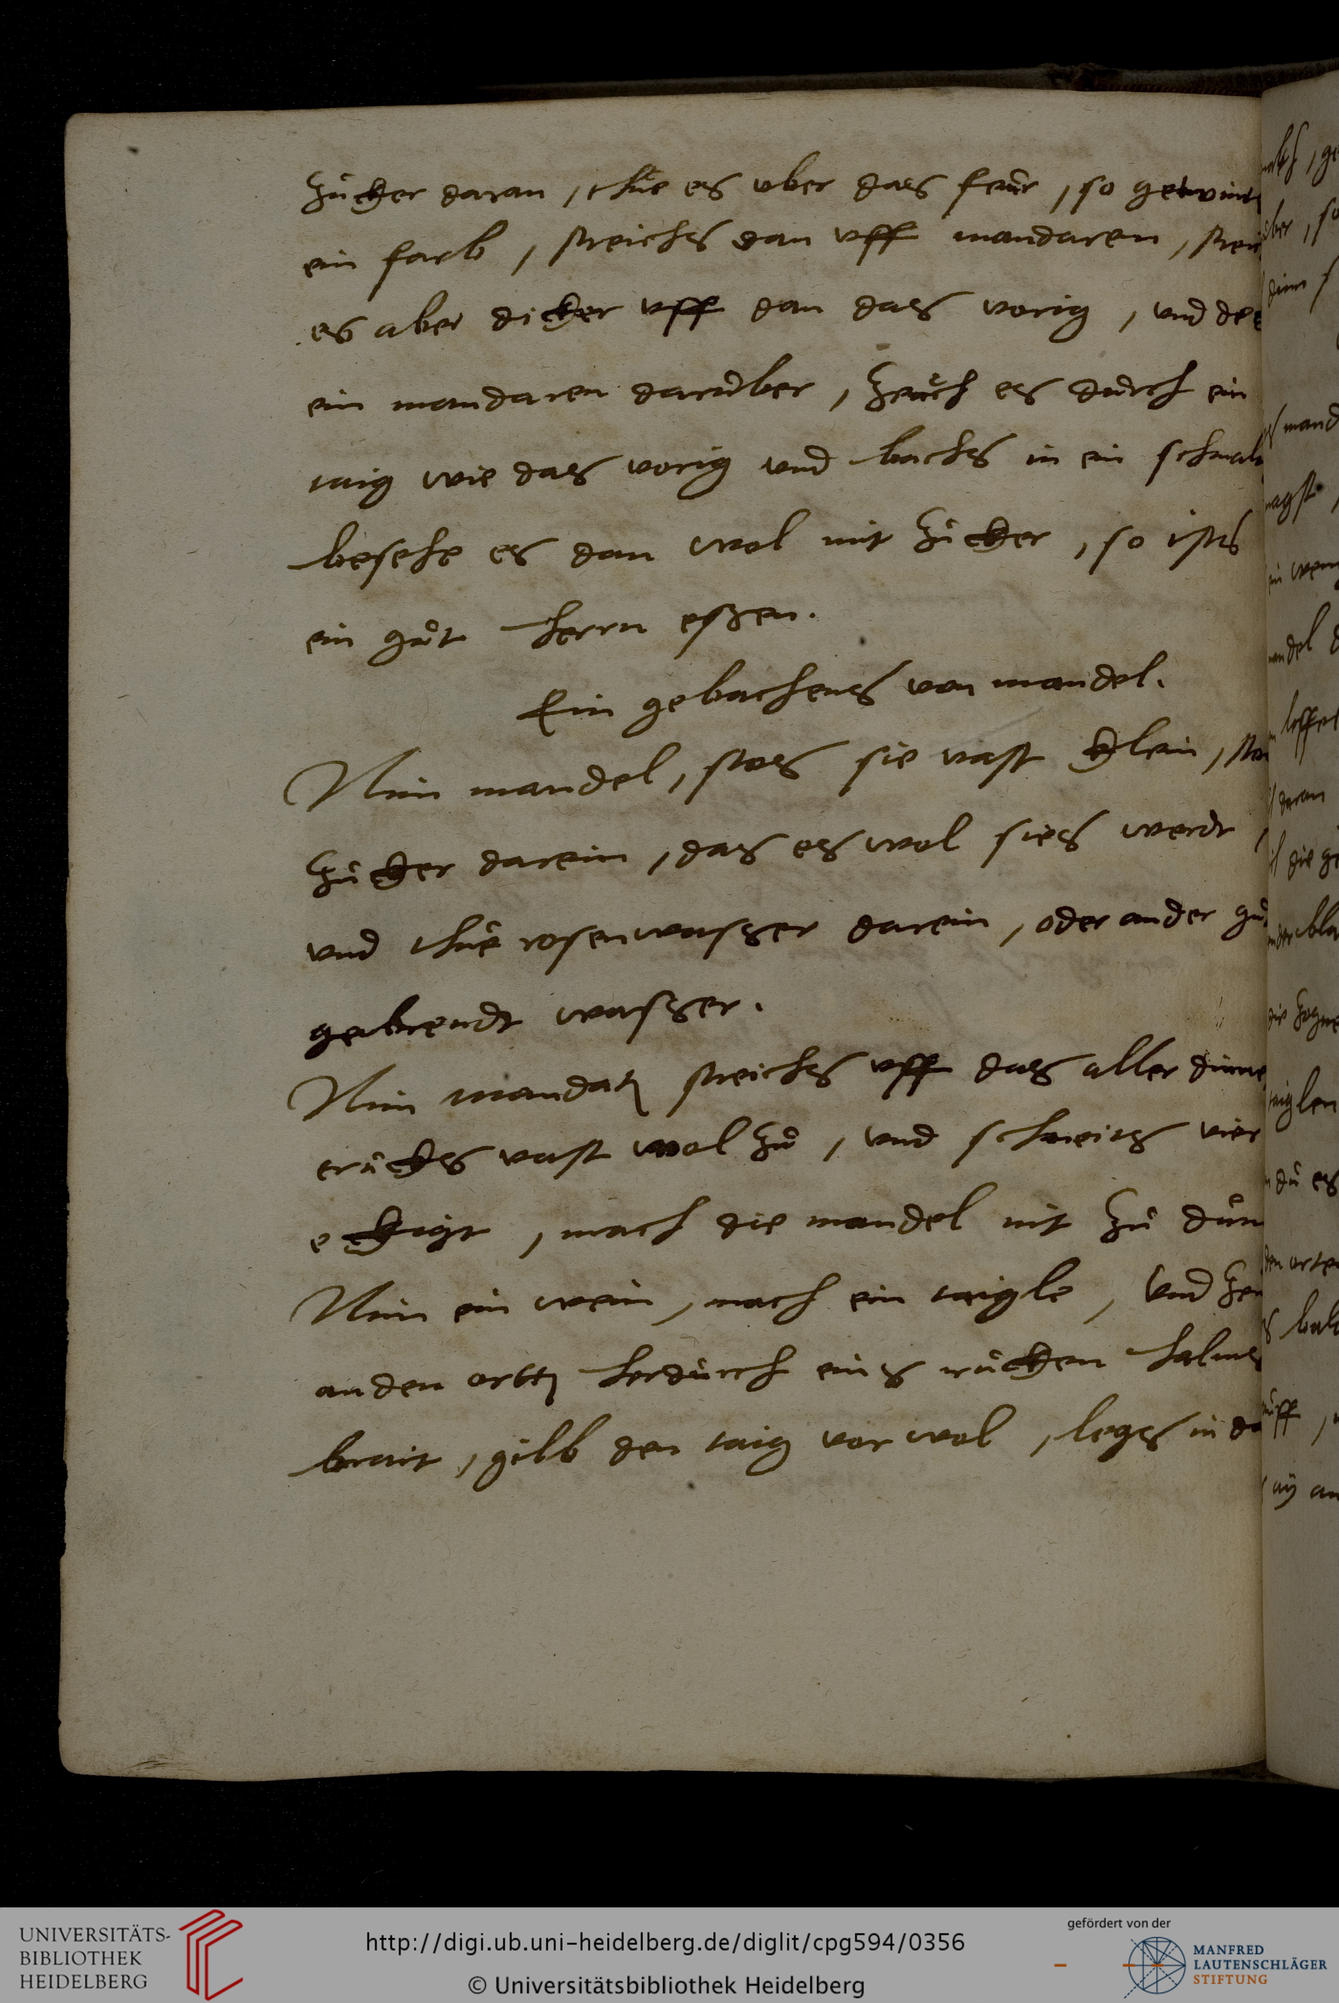 Zucker daran, thue es vber das feur, so gewint
ein farb, streichs dan vff mandaren, streich
es aber dicker vff dan das vorig, vnd deck
ein mandaren daruber, zeuch es durch ein
taig wie das vorig vnd bachs in ein schmalz
besehe es dan wol mit Zucker, so ists
ein gut herrn essen.
Ein gebachens von mandel.
Nim mandel, stos sie vast klein,
Zucker darein, das es wol sies werdt
vnd thue rosenwasser darein, oder ander gut
gebrendt wasser.
Nim mandatt streichs vff das aller dinne
truckhs vast wol zu, vnd schneits vier
eckigt, mach die mandel nit zu dun
Nim ein wein, mach ein taigle, vnd
an den ortten herdurch eins rucken halms
brait, gilb den taig vor wol, legs in
UNIVERSITÄTS-
BIBLIOTHEK
HEIDELBERG
http://digi.ub.uni-heidelberg.de/diglit/cpg594/0356
© Universitätsbibliothek Heidelberg
gefördert von der
MANFRED
LAUTENSCHLÄGER
STIFTUNG